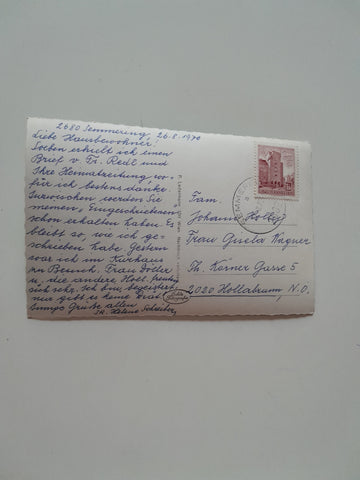 2680 Semmering, 26.8.1970
Liebe Hausbewohner!
Soeben erhielt ich einen
Brief v. Fr. Redl und
Ihre Heimatzeitung wo-
für ich bestens danke.
Inzwischen werden Sie
meinen, Eingeschriebenen
schon erhalten haben. Es
bleibt so, wie ich ge-
schrieben habe. Gestern
war ich im Kurhaus
zu Besuch. Frau
u. die andere
sich sehr. Ich bin begeistert,
nur gibt es keine
Grüße allen
Helene
Fam.
Johann
Frau Gisela Wagner
Th. Körner Gasse 5
2020 Hollabrunn, N.Ö.